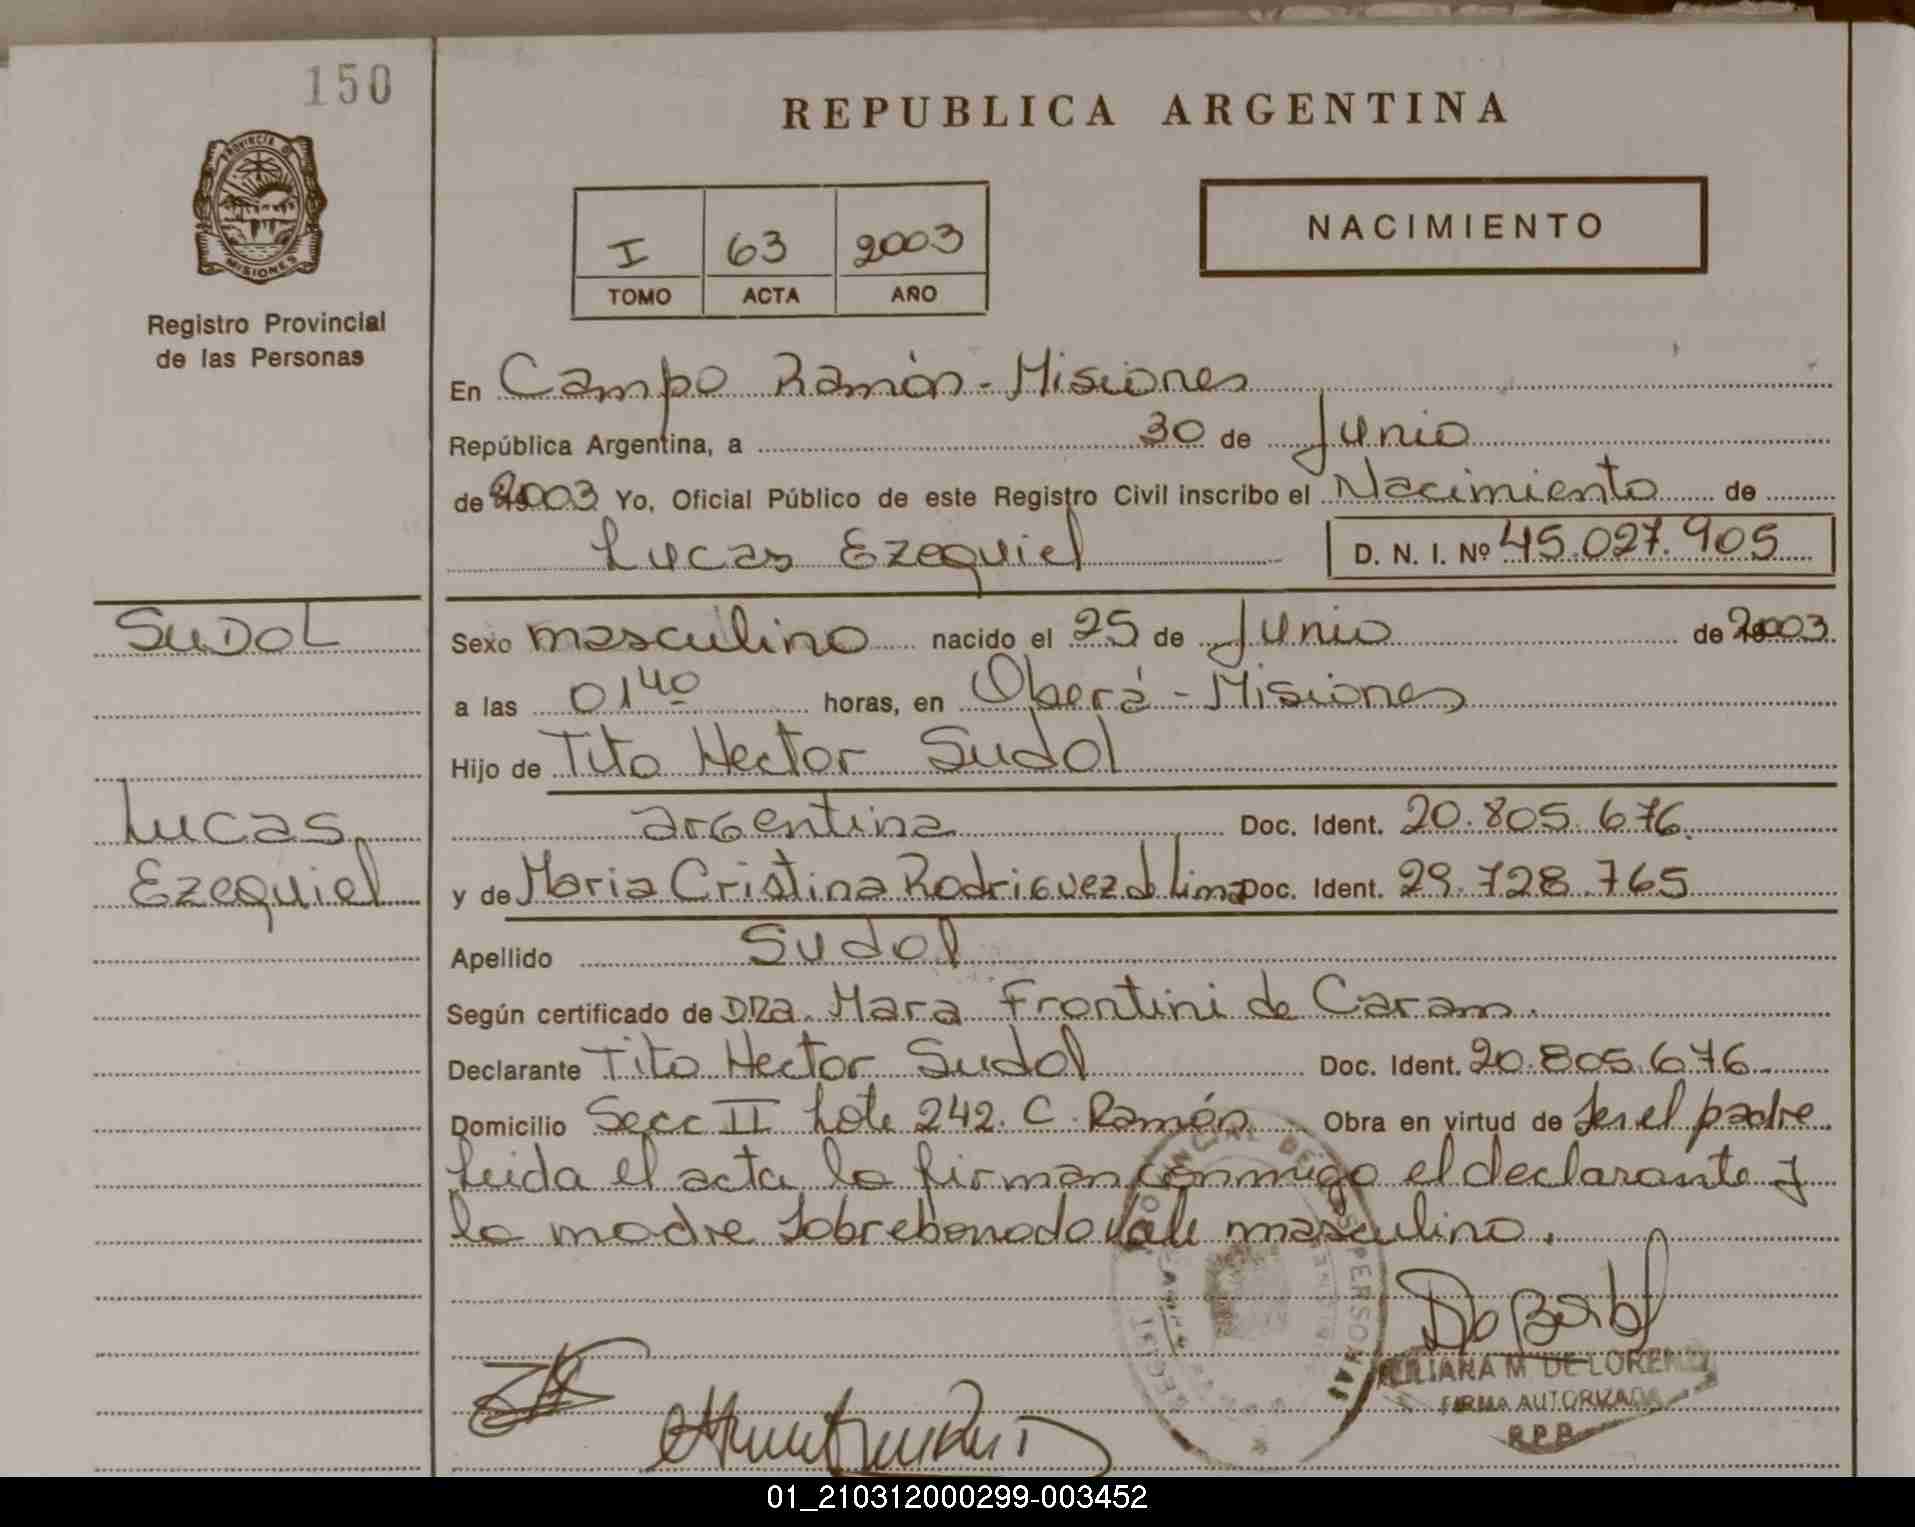 150
REPUBLICA ARGENTINA
PROVINCIA D
MISIONES
Registro Provincial
de las Personas
I 63 2003
TOMO ACTA AÑO
NACIMIENTO
En Campo Ramón - Misiones
República Argentina, a 30 de Junio
de 2003 Yo, Oficial Público de este Registro Civil inscribo el Nacimiento de
Lucas Ezequiel D. N. I. Nº 45.027.905
SUDOL
Sexo masculino nacido el 25 de Junio de 2003
a las 01 40 horas, en Oberá - Misiones
Hijo de Tito Hector Sudol
Lucas
argentina Doc. Ident. 20.805.676
Ezequiel
y de Maria Cristina Rodriguez d Lima Doc. Ident. 29.728.765
Apellido Sudol
Según certificado de DRa. Mara Frontini de Caram.
Declarante Tito Hector Sudol Doc. Ident. 20.805.676
Domicilio Secc II Lote 242. C. Ramón Obra en virtud de Ser el padre
Leida el acta la firman conmigo el declarante y
la madre Sobrebonado Vale masculino.
LILIANA M DE LORENZI
FIRMA AUTORIZADA
R.P.P.
01_210312000299-003452